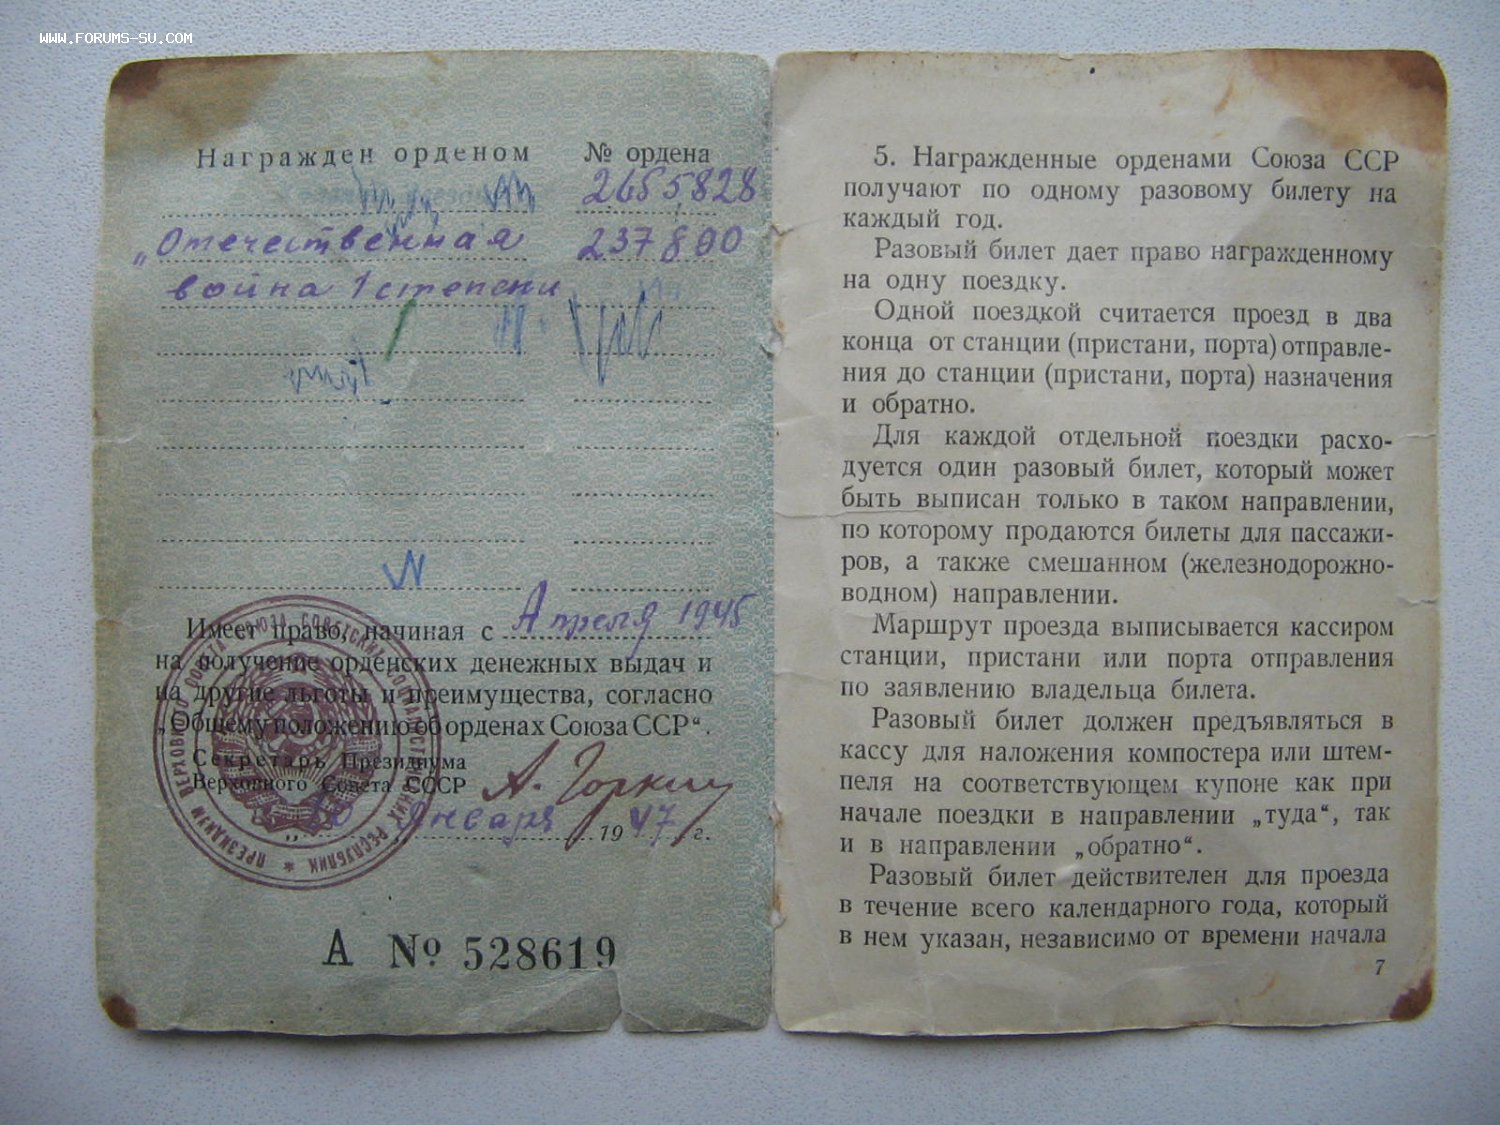 WWW.FORUMS-SU.COM
Награжден орденом № ордена
2655828
„Отечественная 237800
война 1 степени
Имеет право, начиная с Апреля 1945
на получение орденских денежных выдач и
на другие льготы и преимущества, согласно
„Общему положению об орденах Союза ССР“.
Секретарь Президиума
Верховного Совета СССР А. Горкин
„10 Января 1947 г.
ПРЕЗИДИУМ ВЕРХОВНОГО СОВЕТА СОЮЗА СОВЕТСКИХ СОЦИАЛИСТИЧЕСКИХ РЕСПУБЛИК *
А № 528619
5. Награжденные орденами Союза ССР
получают по одному разовому билету на
каждый год.
Разовый билет дает право награжденному
на одну поездку.
Одной поездкой считается проезд в два
конца от станции (пристани, порта) отправле-
ния до станции (пристани, порта) назначения
и обратно.
Для каждой отдельной поездки расхо-
дуется один разовый билет, который может
быть выписан только в таком направлении,
по которому продаются билеты для пассажи-
ров, а также смешанном (железнодорожно-
водном) направлении.
Маршрут проезда выписывается кассиром
станции, пристани или порта отправления
по заявлению владельца билета.
Разовый билет должен предъявляться в
кассу для наложения компостера или штем-
пеля на соответствующем купоне как при
начале поездки в направлении „туда“, так
и в направлении „обратно“.
Разовый билет действителен для проезда
в течение всего календарного года, который
в нем указан, независимо от времени начала
7